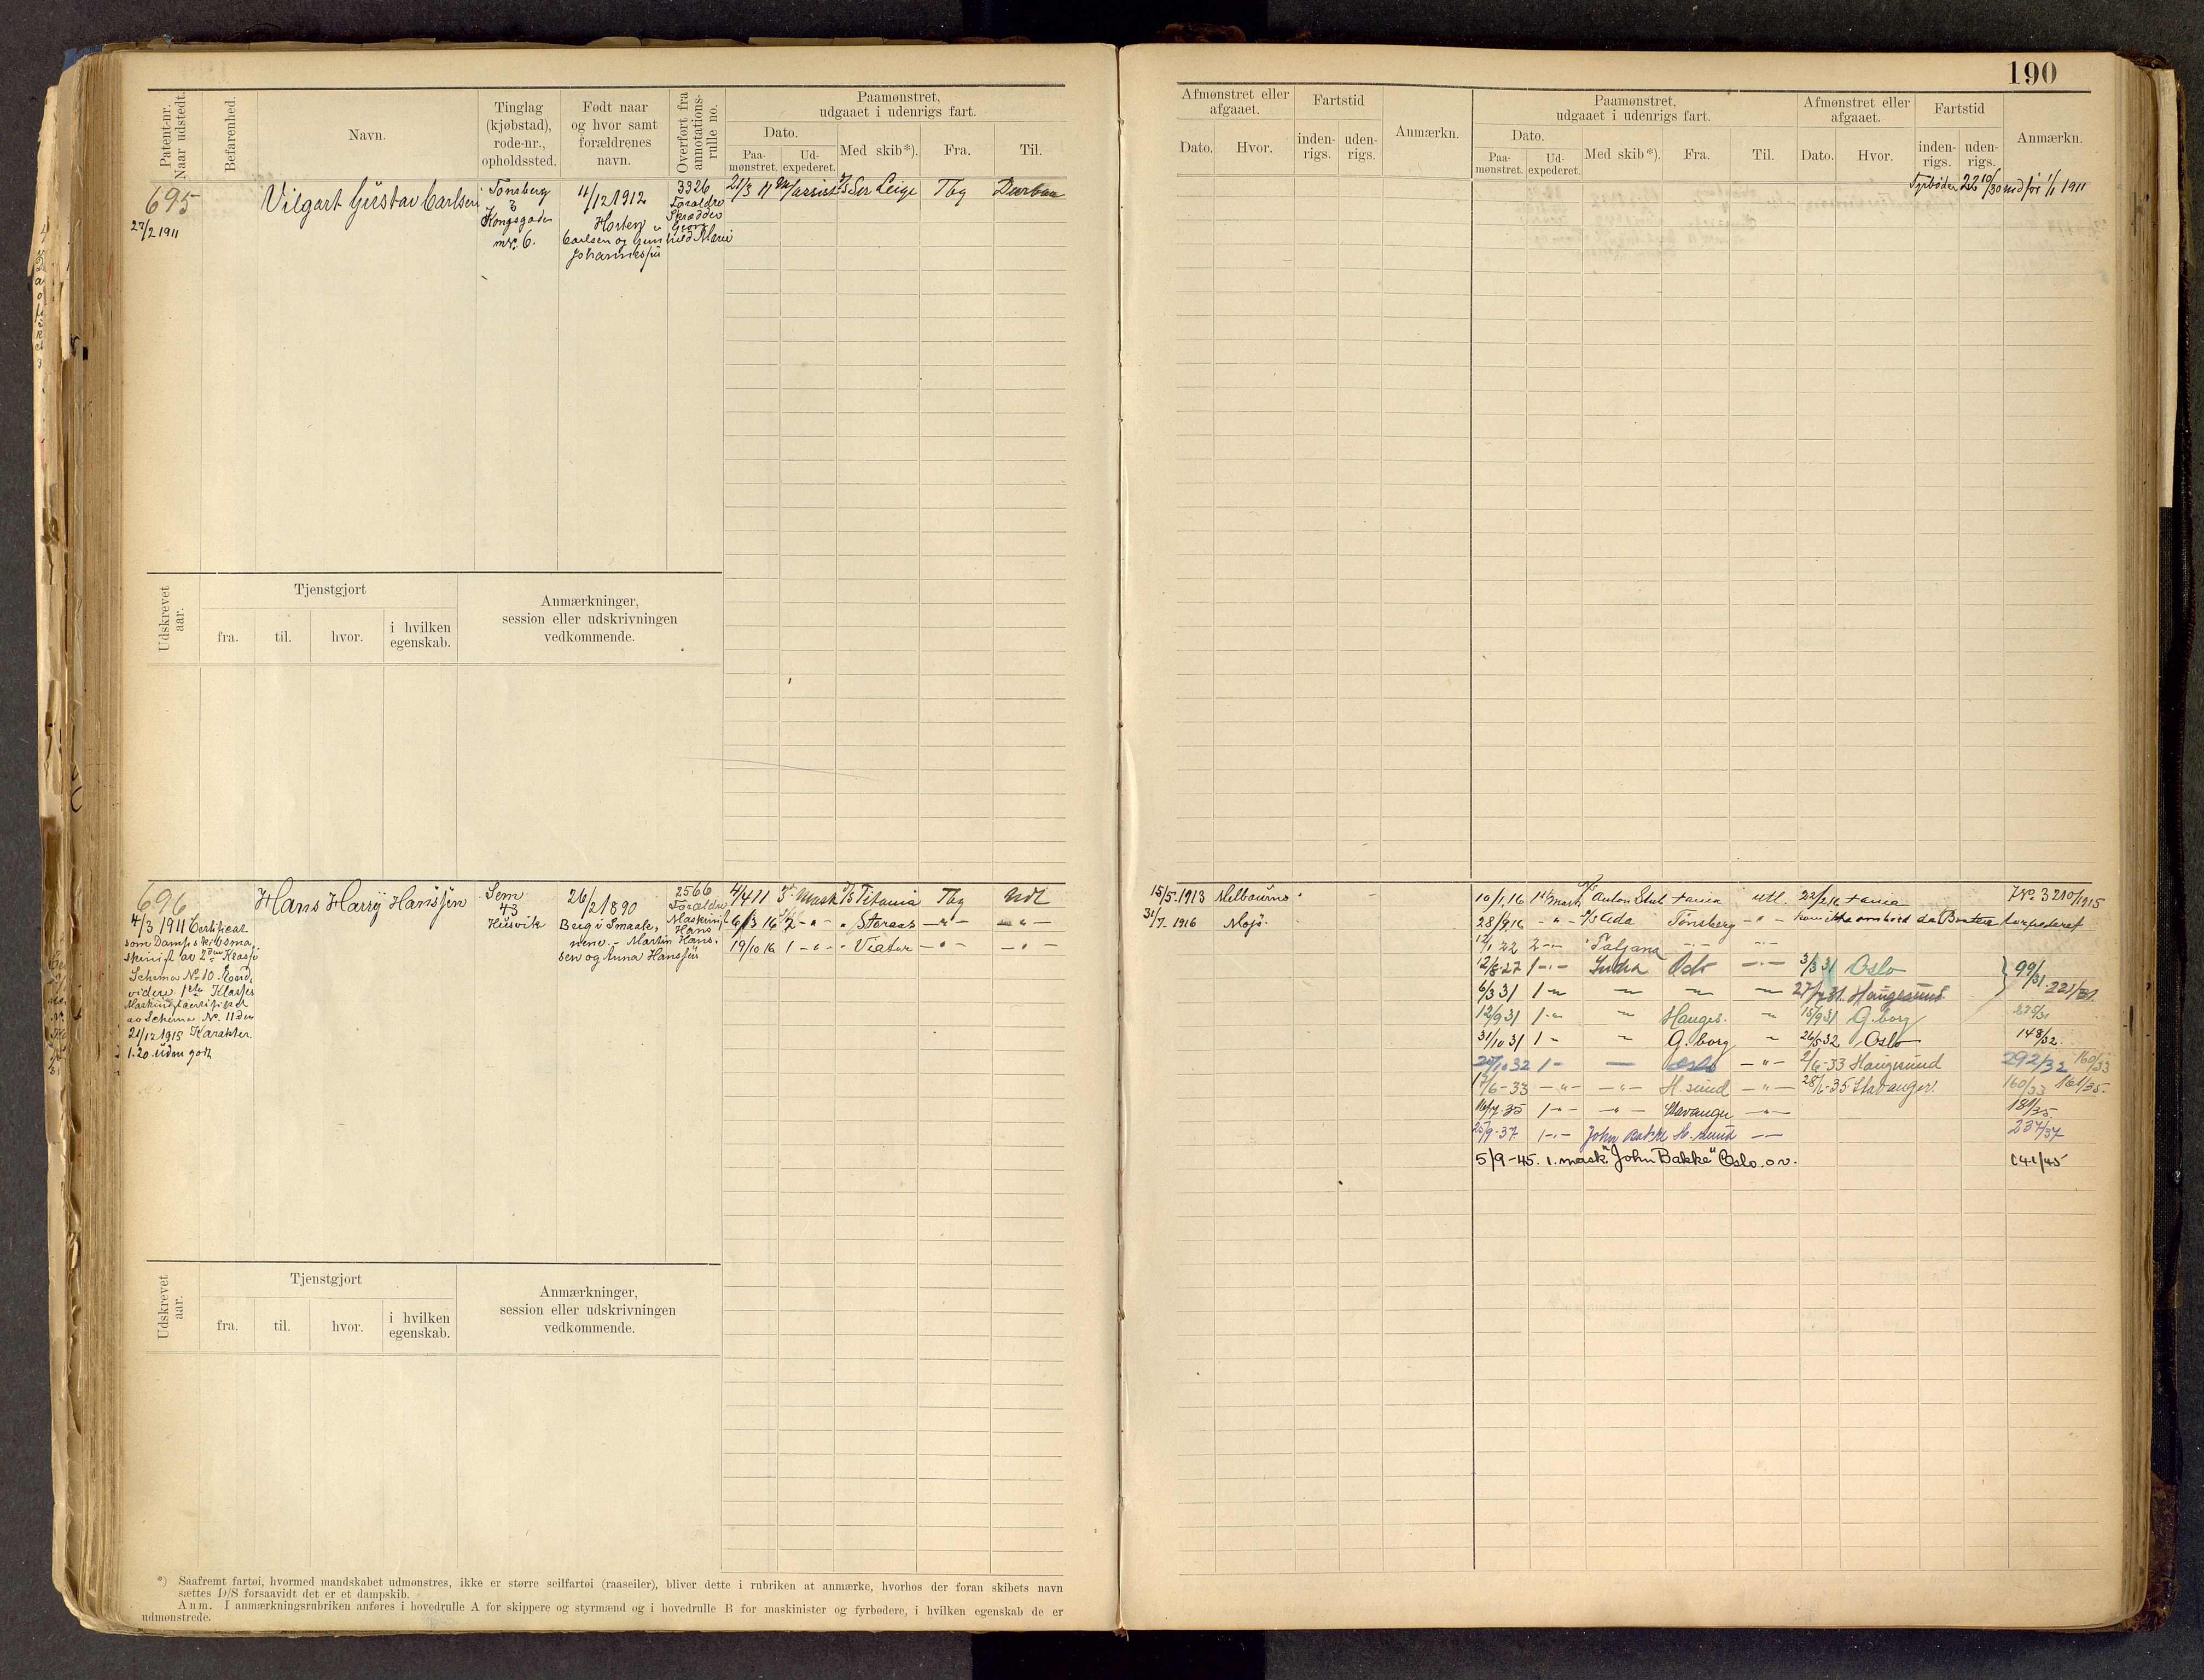 190
Patent-nr. Naar udstedt.
Befarenhed.
Navn.
Tinglag (kjøbstad), rode-nr., opholdssted.
Født naar og hvor samt forældrenes navn.
Overført fra annotations-rulle no.
Paamønstret, udgaaet i udenrigs fart.
Dato.
Paa-mønstret.
Ud-expederet.
Med skib*).
Fra.
Til.
695
27/2 1911
Vilgart Gustav Carlsen
Tønsberg
3
Kongsgaden
mr. 6.
4/12 1912
Horten
Carlsen og Gunhild Marie
Johannessen
3326
Forældre
Skrædder
Georg
21/3 11
assist
Sir Leige
Tbg
Durban
Udskrevet aar.
Tjenstgjort
fra.
til.
hvor.
i hvilken egenskab.
Anmærkninger,
session eller udskrivningen
vedkommende.
696
4/3 1911 Certifikat
som Dampskibsma-
skinist av 2den Klasse
Schema No 10. End-
videre 1ste Klasses
Maskinistcertifikat
av Schema No. 11 den
21/12 1915 Karakter
1.20. uden godt
Hans Harry Hanssen
Sem
43
Husvik
26/2 1890
Berg i Smaale-
nene. - Martin Hans-
sen og Anna Hanssen
2566
Forældre
Maskinist
Hans
4/4 11 3' Mask D/S Titania Tbg Udl
6/3 16 2 - " - " Storaas - " - - " -
19/10 16 1 - " - " Viator - " - - " -
Udskrevet aar.
Tjenstgjort
fra.
til.
hvor.
i hvilken egenskab.
Anmærkninger,
session eller udskrivningen
vedkommende.
*) Saafremt fartøi, hvormed mandskabet udmønstres, ikke er større seilfartøi (raaseiler), bliver dette i rubriken at anmærke, hvorhos der foran skibets navn
sættes D/S forsaavidt det er et dampskib.
Anm. I anmærkningsrubriken anføres i hovedrulle A for skippere og styrmænd og i hovedrulle B for maskinister og fyrbødere, i hvilken egenskab de er
udmønstrede.
Afmønstret eller afgaaet.
Dato.
Hvor.
Fartstid
inden-rigs.
uden-rigs.
Anmærkn.
Paamønstret,
udgaaet i udenrigs fart.
Dato.
Paa-mønstret.
Ud-expederet.
Med skib*).
Fra.
Til.
Afmønstret eller afgaaet.
Dato.
Hvor.
Fartstid
inden-rigs.
uden-rigs.
Anmærkn.
Fyrbøder 22 10/30 md før 1/1 1911
15/5. 1913 Melbourne
31/7. 1916 Mojø.
10/1, 16 Mask Anton utl. No 3210/1915
28/9 16 - " - D/S Ada Tønsberg - " - kom ikke ombord da Baaten torpederet
12/1 22 2 - " - Tatjana
12/8-27 1-"- Indra Oslo -"- 3/3 31 Oslo 99/31
6/3 31 1 - 27/7 31. Haugesund 221/31
12/9 31 1- Hauges. 15/9 31 G. borg
31/10 31 1 - G. borg 26/5 32 Oslo 148/32.
32 1 - Oslo - " - 2/6-33 Haugesund 292/32 160/33
7/6-33 - " - - " - H. sund - " - 28/6-35 Stavanger. 160/33 161/35.
16/7.35 1 - " - - " - Stavanger - " - 181/35
25/9-37. 1-"- John Bakke H. sund 237/37
5/9-45. 1. mask "John Bakke" Oslo. o v. 141/45